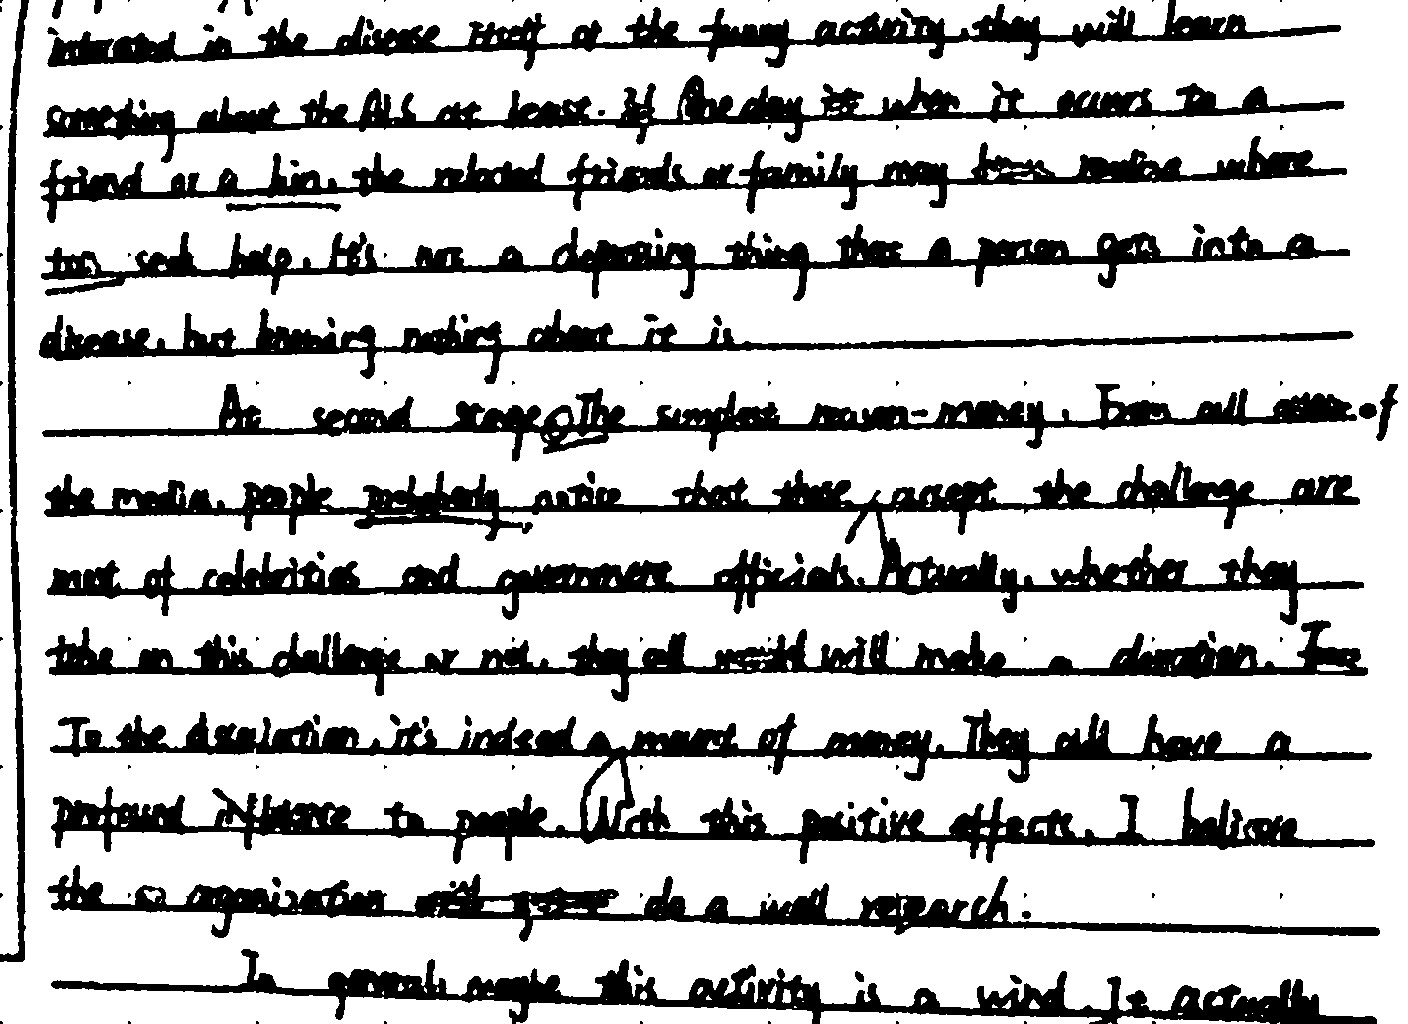 interested in the disease itself or the funny activity, they will learn
something about the ALS at least. One day when it occurs to a
friend or a kin, the related friends or family may realise where
to seek help. It's not a depressing thing that a person gets into a
disease, but knowing nothing about it is.
At second stage, The simplest reason-money. From all of
the media, people probably notice that those accept the challenge are
most of celebrities and government officials. Actually, whether they
take on this challenge or not, they all will make a donation.
To the association, it's indeed a mount of money. They all have a
profound influence to people. With this positive effects, I believe
the organization do a well research.
In general, maybe this activity is a wind. It actually